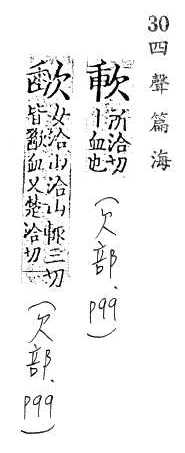 30 四聲篇海
所洽切丨血也 (欠部、P99)
女洽山洽山輒三切皆歃血又楚洽切 (欠部、P99)